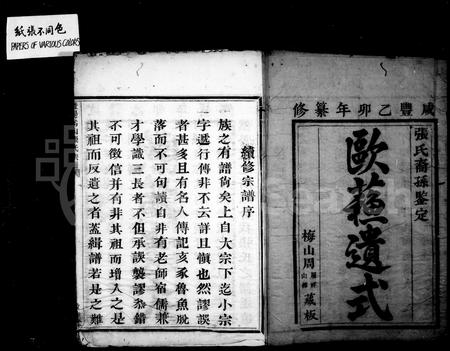 紙張不同色
PAPERS OF VARIOUS COLORS
咸豐乙卯年纂修
張氏裔孫鉴定
歐蘓遺式
梅山周
藏板
續修宗譜序
族之有譜尙矣上自大宗下迄小宗
字遞行傳非不云詳且慎也然謬誤
者甚多且有名人傳記亥豕魯魚脫
落而不可句讀自非有老師宿儒兼
才學識三長者不但承誤襲謬叅錯
不可徵信并有非其祖而增入之是
其祖而反遺之者蓋緝譜若是之難